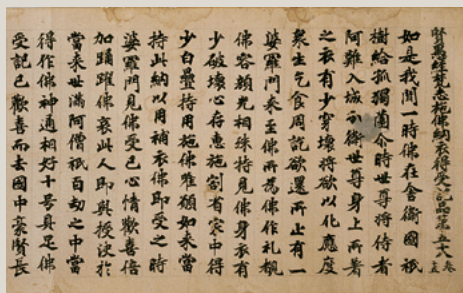 賢愚經梵志施佛納衣得受記品第五十五 卷十二
如是我聞一時佛在舍衛國祇
樹給孤獨園尒時世尊將侍者
阿難入城乞食世尊身上所著
之衣有少穿壞將欲以化應度
衆生乞食周訖欲還所止有一
婆羅門来至佛所為佛作礼覩
佛容顏光相殊特見佛身衣有
少破壞心存惠施割省家中得
少白疊持用施佛唯願如来當
持此納以用補衣佛即受之時
婆羅門見佛受已心情歡喜倍
加踊躍佛哀此人即與授決於
當来世滿阿僧祇百劫之中當
得作佛神通相好十号具足佛
受記已歡喜而去國中豪賢長